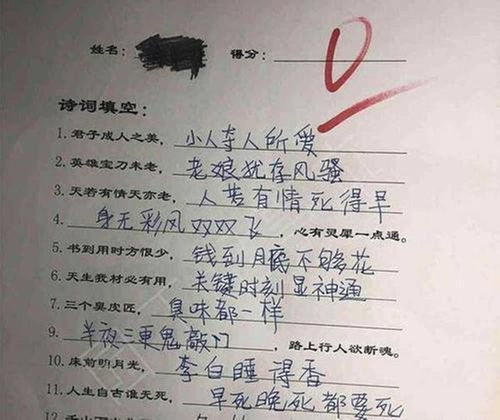 姓名： 得分： 0
诗词填空：
1.君子成人之美，小人夺人所爱
2.英雄宝刀未老，老娘犹存风骚
3.天若有情天亦老，人若有情死得早
4.身无彩凤双双飞，心有灵犀一点通。
5.书到用时方恨少，钱到月底不够花
6.天生我材必有用，关键时刻显神通
7.三个臭皮匠，臭味都一样
9.半夜三更鬼敲门，路上行人欲断魂。
10.床前明月光，李白睡得香
11.人生自古谁无死，早死晚死都要死